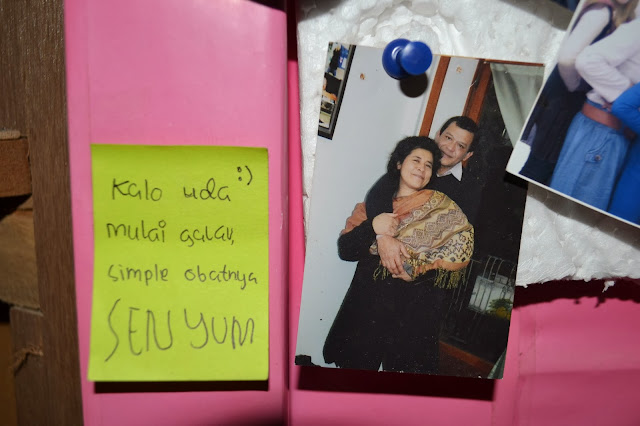 Kalo uda :)
mulai galau,
simple obatnya
SENYUM